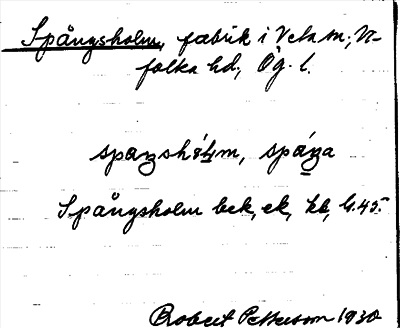 Spångsholm, fabrik i Veta sn, Vi-
folka hd, Ög. l.
Spångsholm bek, ek, kb, G.45.
Robert Petterson 1930